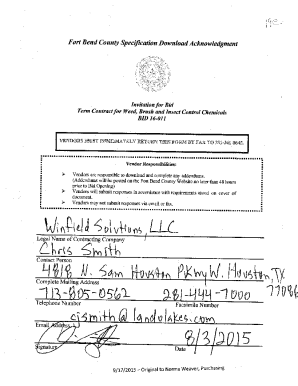 Fort Bend County Specification Download Acknowledgment
Invitation for Bid
Term Contract for Weed, Brush and Insect Control Chemicals
BID 16-011
VENDORS MUST IMMEDIATELY RETURN THIS FORM BY FAX TO
Vendor Responsibilities:
➢ Vendors are responsible to download and complete any addendums.
(Addendums will be posted on the Fort Bend County Website no later than 48 hours
prior to Bid Opening)
➢ Vendors will submit responses in accordance with requirements stated on cover of
document.
➢ Vendors may not submit responses via email or fax.
Winfield Solutions, LLC
Legal Name of Contracting Company
Chris Smith
Contact Person
4818 N. Sam Houston PKwy W. Houston, TX
77086
Complete Mailing Address
713-805-0562 281-444-7000
Telephone Number Facsimile Number
cjsmith@landolakes.com
Email Address
8/3/2015
Signature Date
8/17/2015 - Original to Norma Weaver, Purchasing